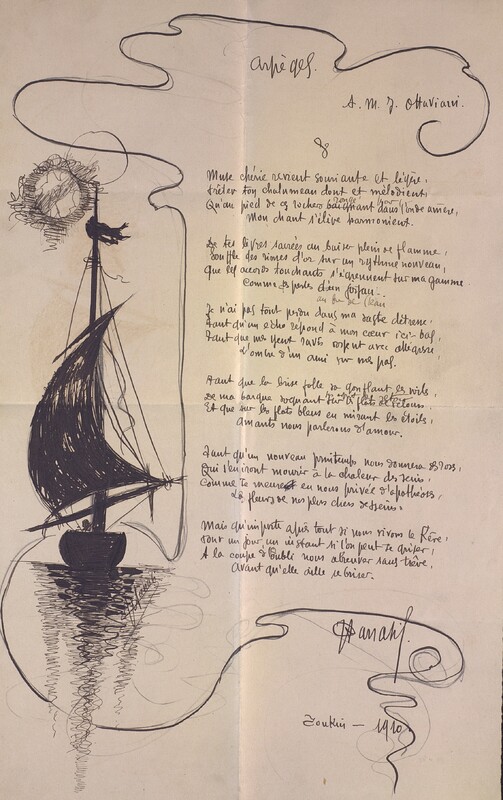 Arpèges.
A. M. J. Ottaviani.
Muse chérie revient souriante et légère,
ton chalumeau doux et mélodieux,
Qu'au pied de ces rochers dans l'onde amère,
Mon chant s'élève harmonieux.
De tes lèvres sacrées au baiser plein de flamme,
Souffle des rimes d'or sur un rythme nouveau,
Que les accords touchants s'égrennent sur ma gamme
Comme des perles
au de l'eau
Je n'ai pas tout perdu dans ma vaste détresse,
Tant qu'un écho répond à mon cœur ici-bas,
Tant que mes yeux ravis voient avec allégresse,
L'ombre d'un ami sur mes pas.
Tant que la brise folle gonflant les voiles,
De ma barque voguant
Et que sur les flots bleus en mirant les étoiles,
Amants nous parlerons d'amour.
Tant qu'un nouveau printemps nous donnera des roses,
Qui s'en iront mourir à la chaleur des seins,
Comme en nous privées d'apothéoses,
Les fleurs de nos plus chers desseins.
Mais qu'importe après tout si nous vivons le Rêve,
un jour un instant si l'on peut se griser,
A la coupe d'oubli nous abreuver sans trêve,
Avant qu'elle aille se briser.
Tonkin — 1910